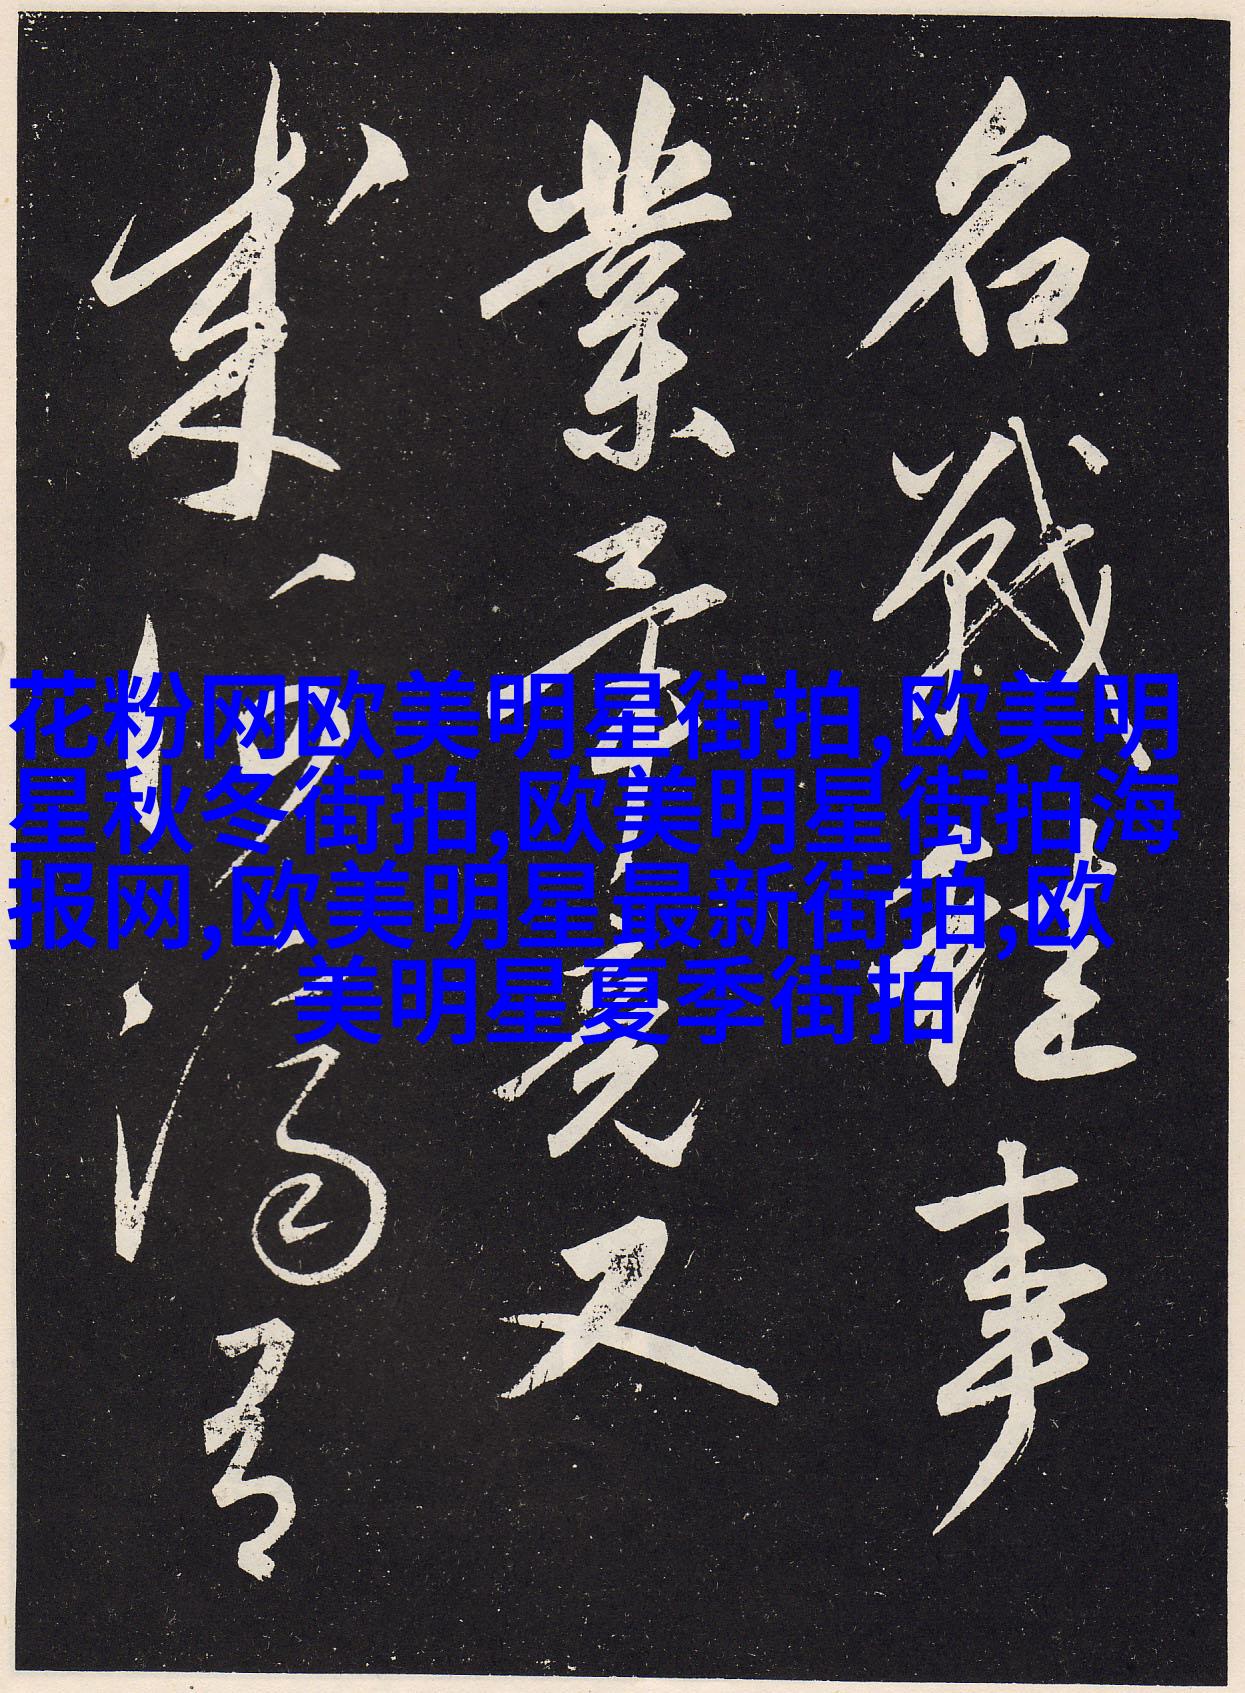 名戰雖事
業竟又
成河湯言
花粉网欧美明星街拍,欧美明
星秋冬街拍,欧美明星街拍海
报网,欧美明星最新街拍,欧
美明星夏季街拍